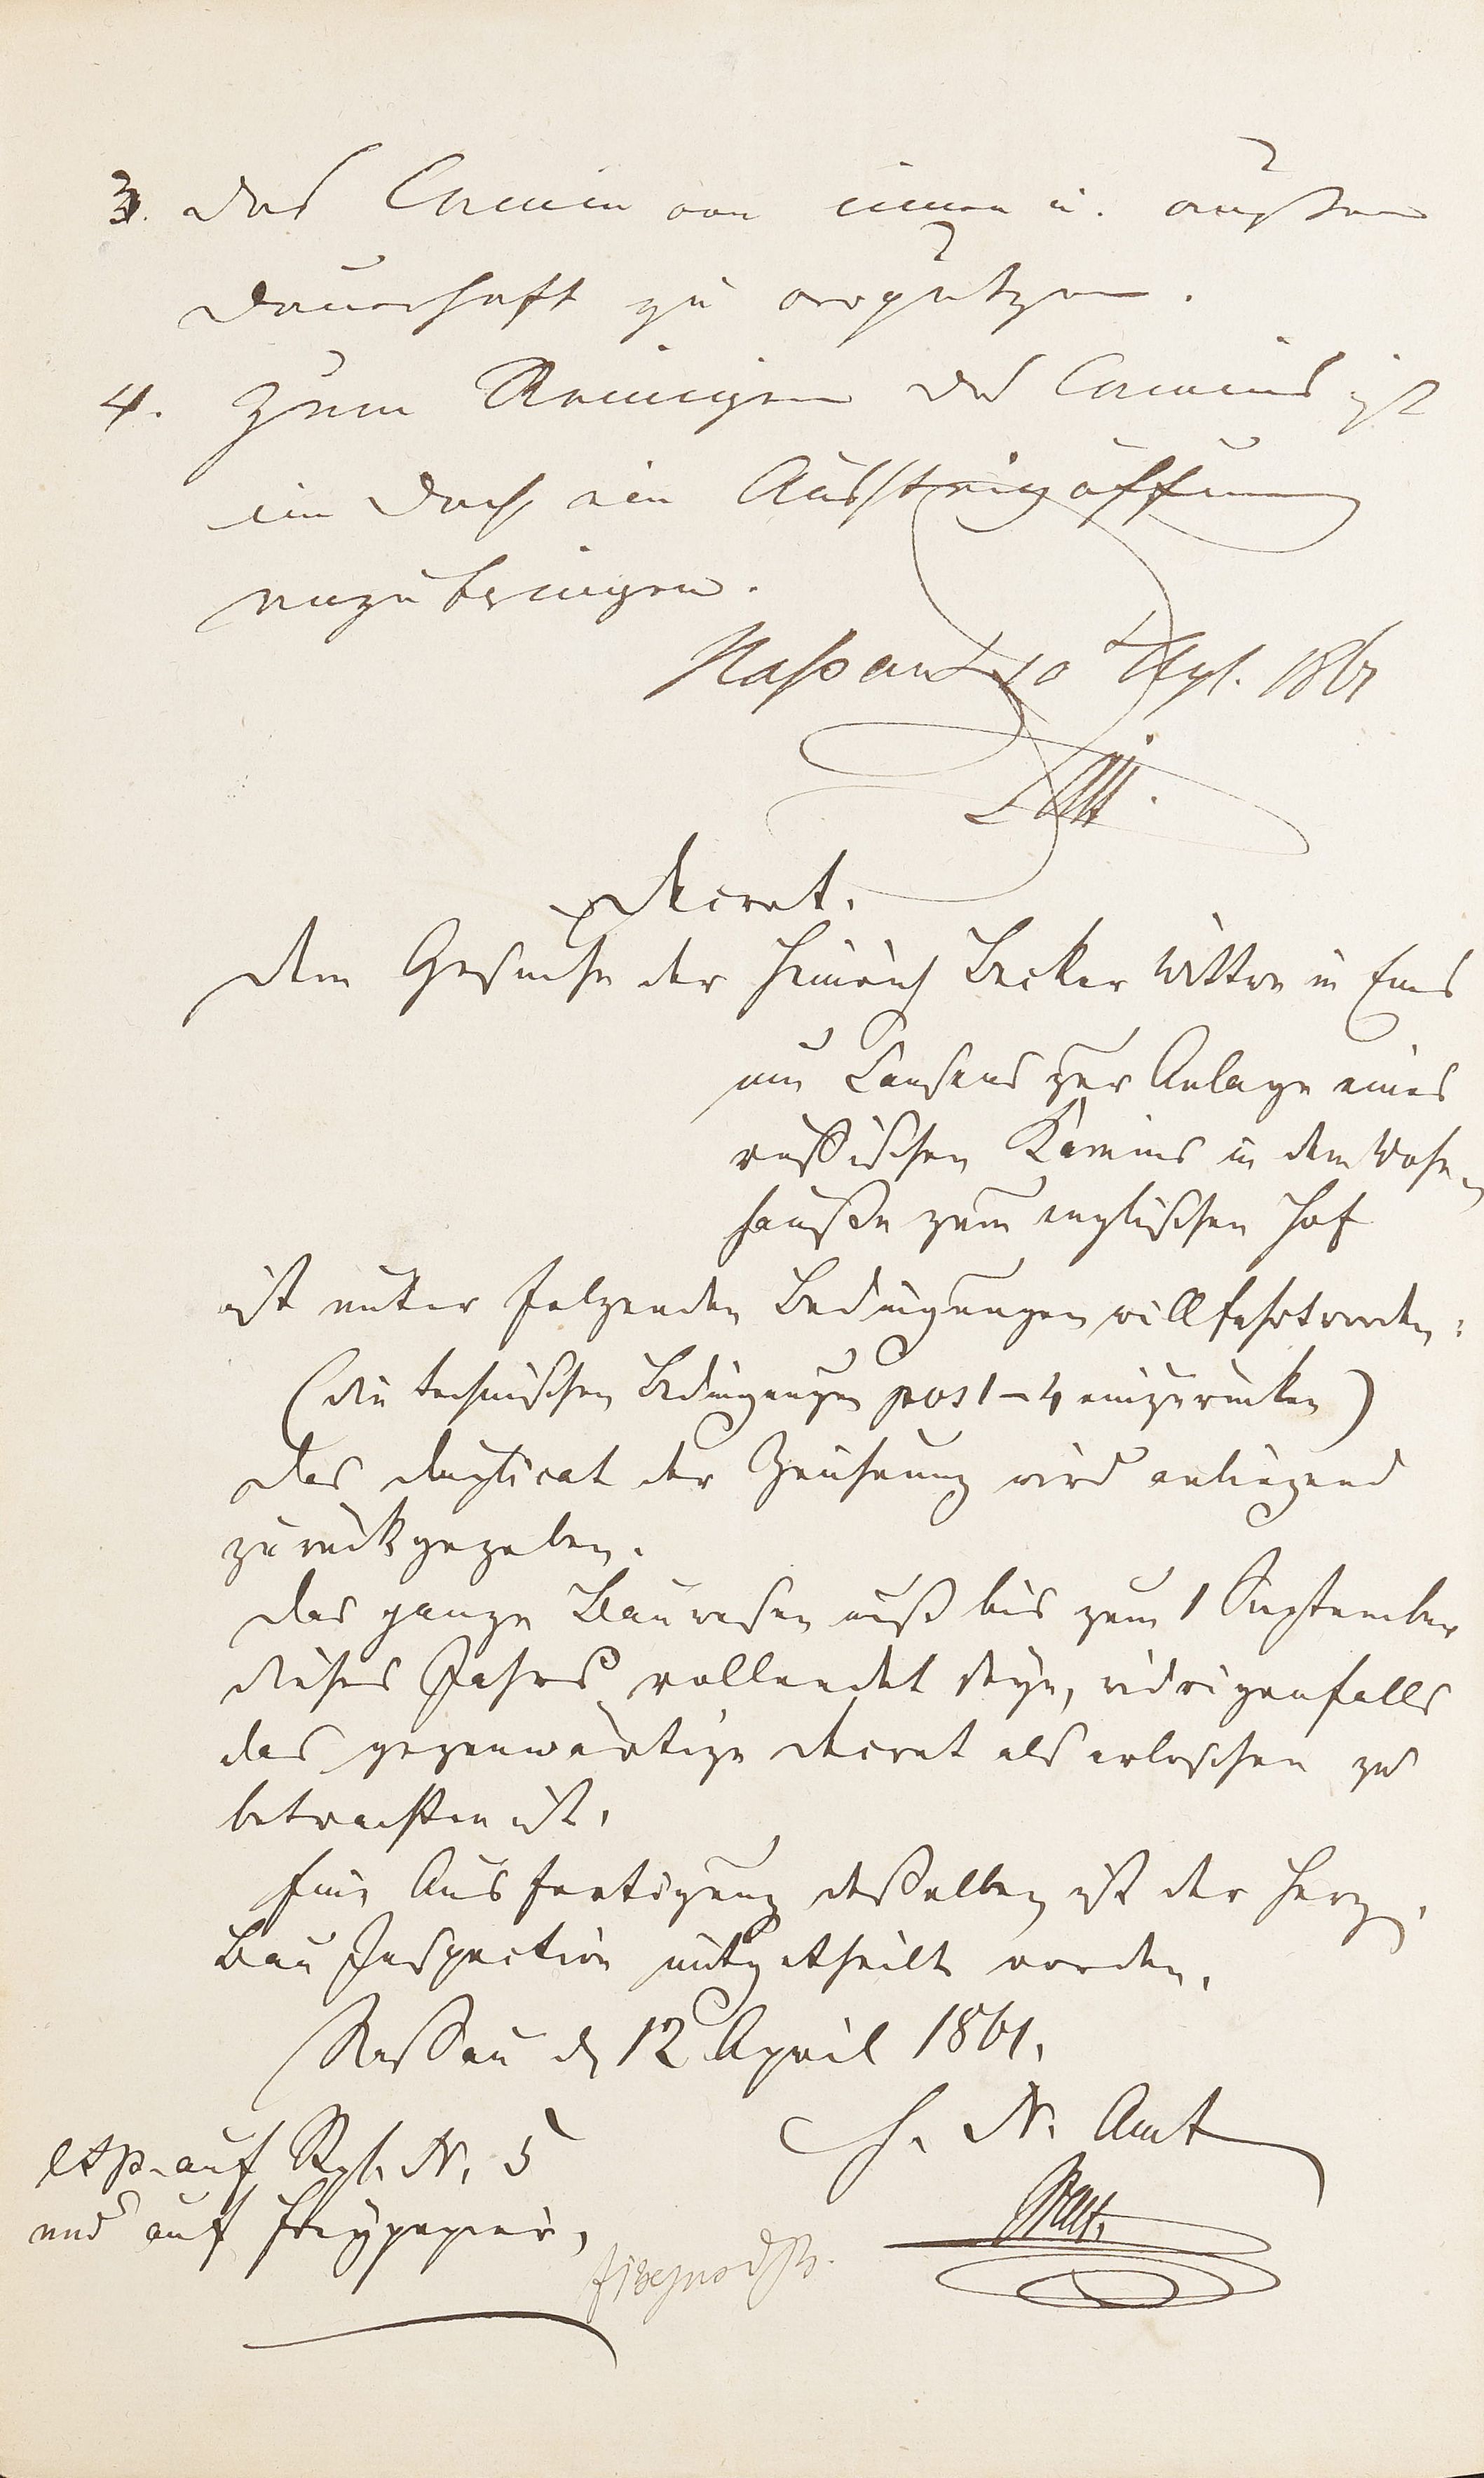 3. das Camin von innen u. außen
dauerhaft zu verputzen.
4. Zum Reinigen des Camins ist
im Dach ein Aussteigöffnung
anzubringen.
Nassau 10 Apl. 1861
Decret.
Dem Gesuche der Heinrich Becker Wittwe in Ems
um Consens zur Anlage eines
russischen Kamins in dem Wohn-
hauße zum englischen Hof
ist unter folgenden Bedingungen willfahrt worden:
(die technischen Bedingungen pos 1-4 einzurücken)
Das Duplicat der Zeichnung wird anliegend
zurückgegeben.
Das ganze Bauwesen muß bis zum 1 September
dieses Jahres vollendet seyn, widrigenfalls
das gegenwärtige Decret als erloschen zu
betrachten ist.
Eine Ausfertigung desselben ist der Herz.
Bau Inspection mitgetheilt worden.
Nassau d 12 April 1861.
H. N. Amt
auf N. 5
und auf Freypapier,